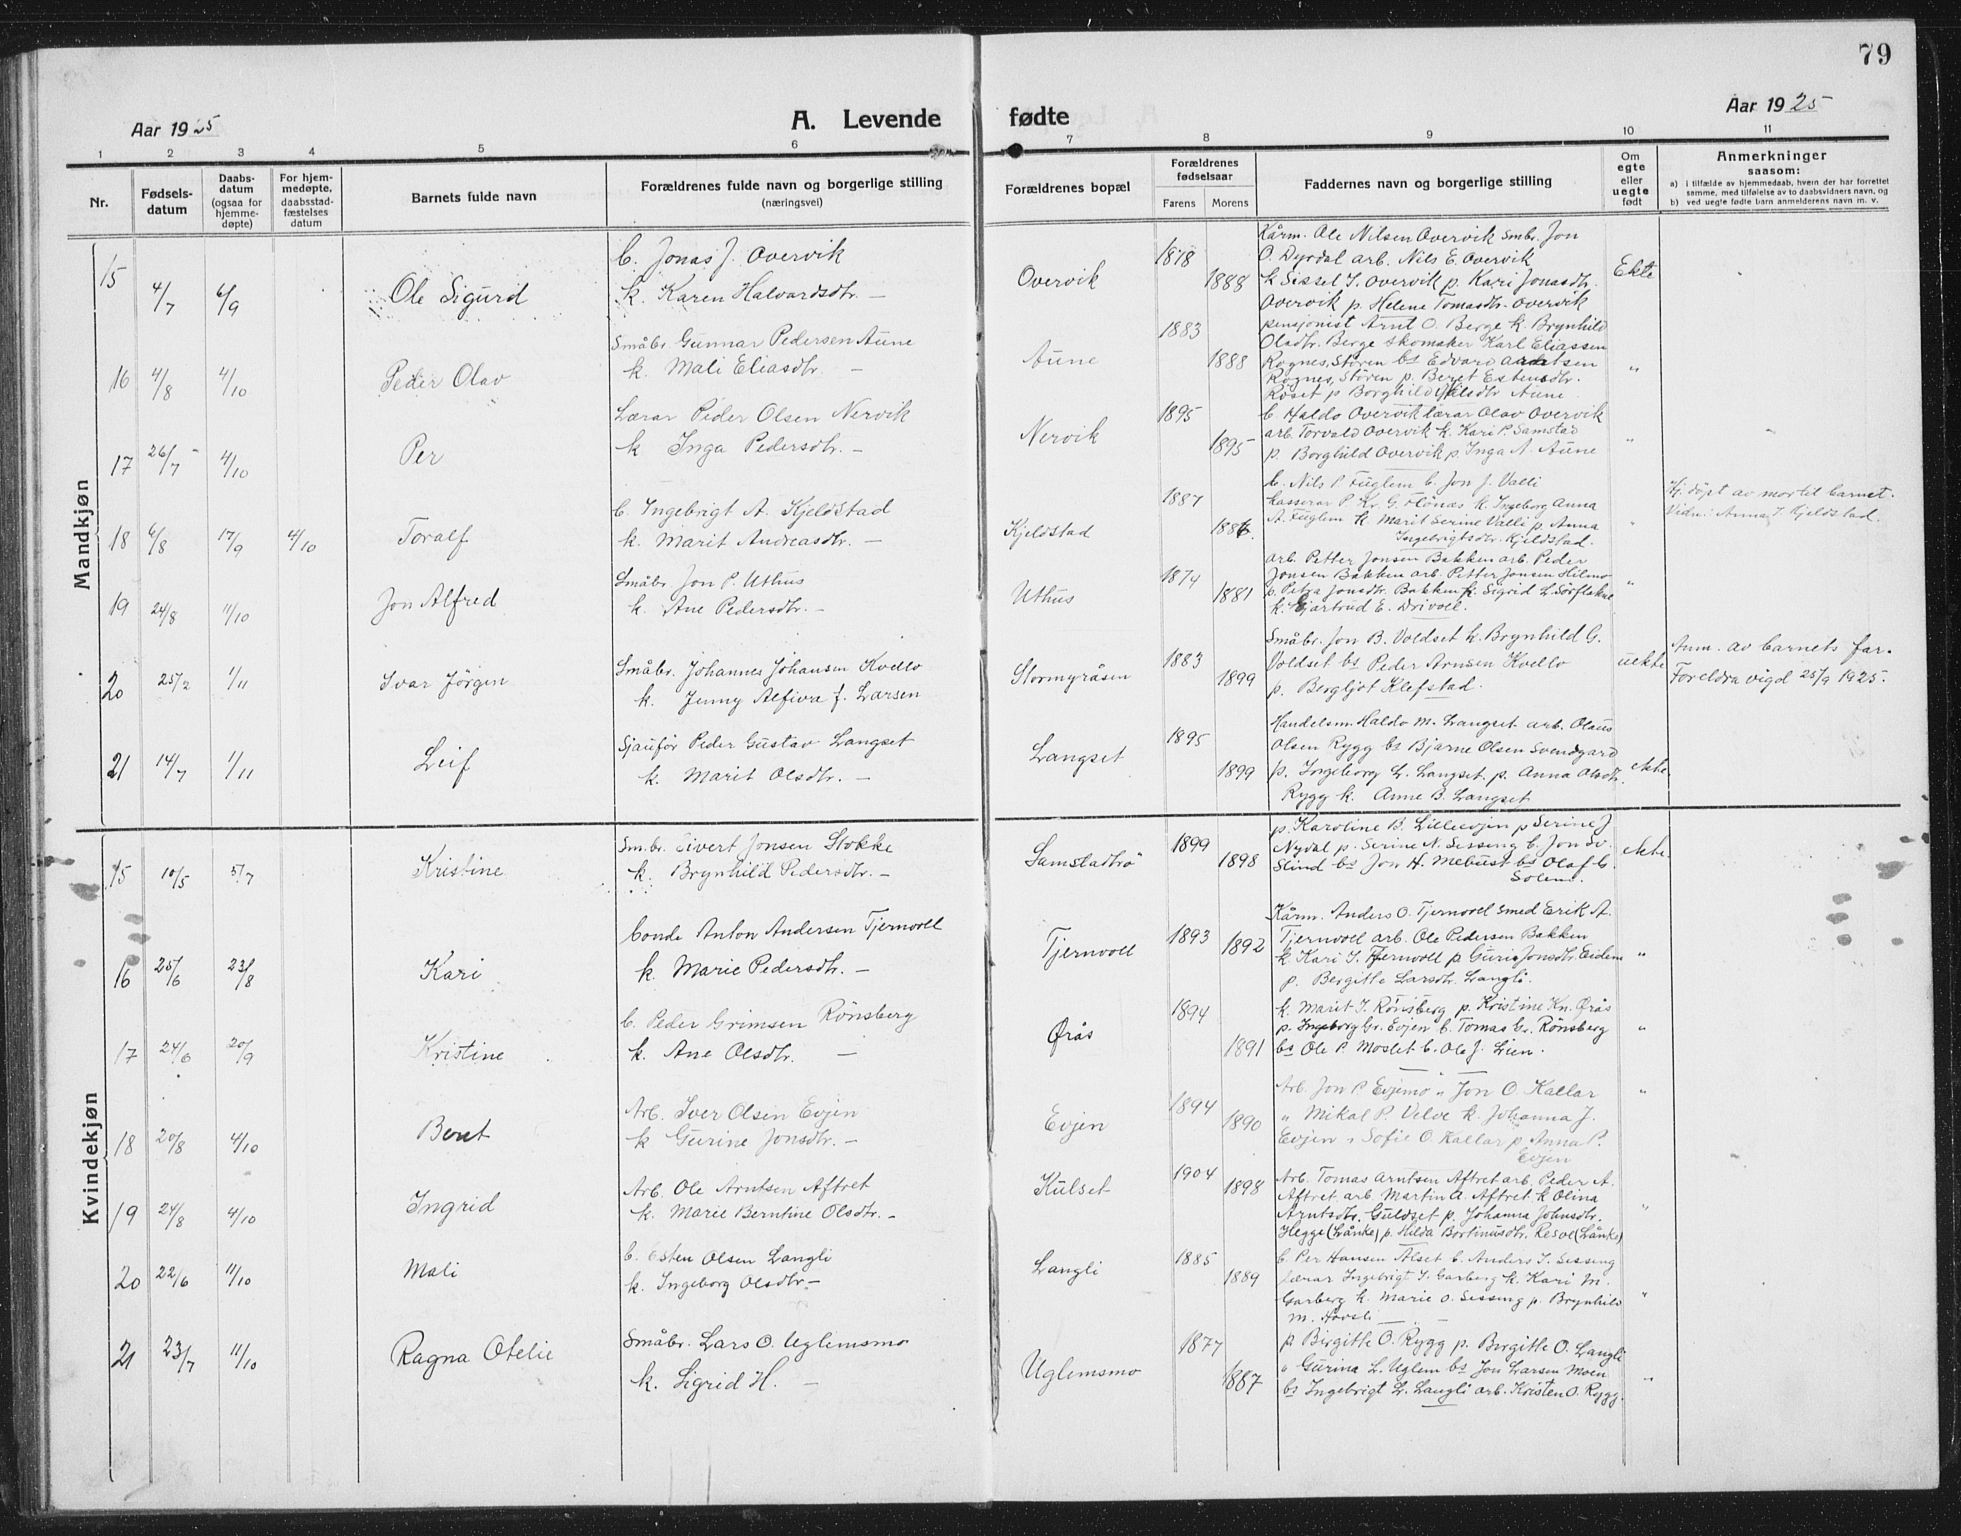 79
Aar 1925
A. Levende fødte
Aar 1925
1 2 3 4 5 6 7 8 9 10 11
Nr.
Fødsels-
datum
Daabs-
datum
(ogsaa for
hjemme-
døpte)
For hjem-
medøpte,
daabsstad-
fæstelses
datum
Barnets fulde navn
Forældrenes fulde navn og borgerlige stilling
(næringsvei)
Forældrenes bopæl
Forældrenes
fødselsaar
Farens Morens
Faddernes navn og borgerlige stilling
Om
egte
eller
uegte
født
Anmerkninger
saasom:
a) i tilfælde av hjemmedaab, hvem der har forrettet
samme, med tilføielse av to daabsvidners navn, og
b) ved uegte fødte barn anmelderens navn m. v.
Mandkjøn
15 4/7 6/9 Ole Sigurd
b. Jonas J. Overvik
k. Karen Halvardsdtr. —
Overvik 1878 1888
Kårm. Ole Nilsen Overvik smbr. Jon
O. Dyrdal arb. Nils E. Overvik
k Sissel J. Overvik p. Kari Jonasdtr.
Overvik p. Helene Tomasdtr. Overvik
Ekte
16 4/8 4/10 Peder Olav
Småbr. Gunnar Pedersen Aune
k. Mali Eliasdtr. —
Aune 1883 1888
pensjonist Arnt O. Berge k. Brynhild
Olsdtr. Berge skomaker Karl Eliassen
Rognes, Støren bs Edvard Arntsen
Rognes, Støren p. Beret Estensdtr.
Røset p Borghild Olsdtr Aune
"
17 26/7 4/10 Per
Lærar Peder Olsen Nervik
k Inga Pedersdtr. —
Nervik 1895 1895
b. Haldo Overvik lærar Olav Overvik
arb. Torvald Overvik k. Kari P. Samstad
p. Borghild Overvik p. Inga A. Aune
"
18 6/8 17/9 4/10 Toralf
b. Ingebrigt A. Kjeldstad
k. Marit Andreasdtr. —
Kjeldstad 1887 1886.
b. Nils P. Fuglem b. Jon J. Valli
kasserar P. Kr. G. Flönæs k. Ingeborg Anna
A. Fuglem k Marit Serine Valli p. Anna
Ingebrigtsdtr. Kjeldstad.
"
Hj. döpt av mor til barnet.
Vidn: Anna I. Kjeldstad.
19 24/8 11/10 Jon Alfred
Småbr. Jon P. Uthus
k. Ane Pedersdtr. —
Uthus 1874 1881
arb. Petter Jonsen Bakken arb. Peder
Jonsen Bakken arb. Petter Jonsen Hilmo
p. Petra Jonsdtr. Bakken k. Sigrid L. Sörflakne
k. Gjartrud E. Drivoll.
"
20 25/2 1/11 Ivar Jörgen
Småbr. Johannes Johansen Kvello
k. Jenny Alfiva f. Larsen
Stormyråsen 1883 1899
Småbr. Jon B. Voldset k. Brynhild G.
Voldset bs Peder Arnsen Kvello
p. Bergljot Klefstad.
uekte
Anm. av barnets far.
Foreldra vigd 25/9 1925.
21 14/7 1/11 Leif
Sjauför Peder Gustav Langset
k. Marit Olsdtr. —
Langset 1895 1899
Handelsm. Haldo M. Langset arb. Olaus
Olsen Rygg bs Bjarne Olsen Svendgard
p. Ingeborg L. Langset p. Anna Olsdtr.
Rygg k. Anne B. Langset
ekte.
Kvindekjøn
15 10/5 5/7 Kristine
Smbr. Sivert Jonsen Stokke
k. Brynhild Pedersdtr. —
Samstadtrö 1899 1898
p. Karoline B. Lilleevjen p Serine J
Nydal p. Serine N. Sessing b. Jon Sv.
Slind bs Jon H. Mebust bs Olaf G.
Solem.
ekte.
16 25/6 23/8 Kari
Conde Anton Andersen Tjernvoll
k. Marie Pedersdtr. —
Tjernvoll 1893 1892
Kårm. Anders O. Tjernvoll smed Erik A.
Tjernvoll arb. Ole Pedersen Bakken
k Kari J. Tjernvoll p. Guri Jonsdtr. Eidem
p. Bergitte Larsdtr. Langli.
"
17 24/6 20/9 Kristine
b. Peder Grimsen Rönsberg
k. Ane Olsdtr. —
ØråS 1894 1891
k. Marit J. Rönsberg p. Kristine Kn. Øräs
p. Ingeborg Gr. Evjen b. Tomas Gr. Rönsberg
bs Ole P. Moslet b. Ole J. Lien.
"
18 20/8 4/10 Beret
Arb. Iver Olsen Evjen
k Gurine Jonsdtr. —
Evjen 1894 1890
Arb. Jon P. Evjemo " Jon O. Kallar
" Mikal P. Velve k. Johanna J.
Evjen " Sofie O. Kallar p. Anna P.
Evjen
"
19 24/8 4/10 Ingrid
Arb. Ole Arntsen Aftret
k. Marie Berntine Olsdtr. —
Kulset 1904 1898
Arb. Tomas Arntsen Aftret arb. Peder A.
Aftret arb. Martin A. Aftret. k Olina
Arntsdtr. Guldset p. Johanna Johnsdtr.
Hegge (Lånke) p. Hilda Bortinusdtr. Resve (Lånke)
"
20 22/6 11/10 Mali
b. Esten Olsen Langli
k. Ingeborg Olsdtr —
Langli 1885 1889
b. Per Hansen Alset b. Anders J. Sessing
lærar Ingebrigt J. Garberg k. Kari M.
Garberg k. Marie O. Sessing p. Brynhild
M. Hovsli
"
21 23/7 11/10 Ragna Otelie
Småbr. Lars O. Uglemsmo
k. Sigrid H. —
Uglemsmo 1877 1887
p. Birgitte O. Rygg p. Birgitte O. Langli
" Gurina L. Uglem bs Jon Larsen Moen
bs Ingebrigt L. Langli arb. Kristen O. Rygg.
"